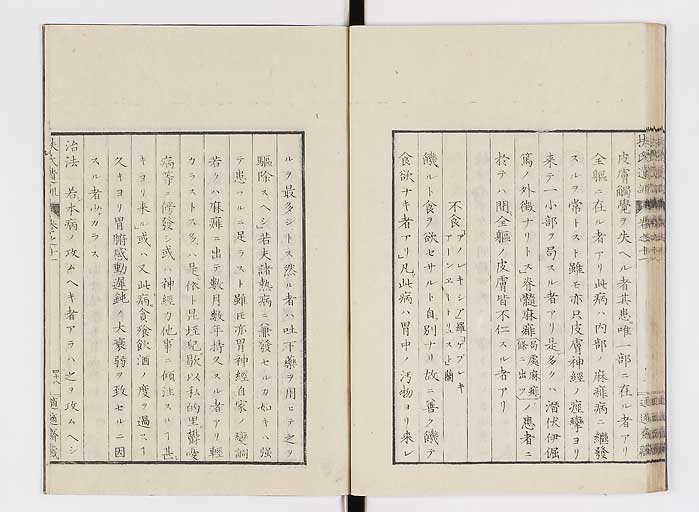 皮膚觸覺ヲ失ヘル者其患唯一部ニ在ル者アリ
全軀ニ在ル者アリ此病ハ内部ノ麻痺病ニ繼發
スルヲ常トスト雖モ亦只皮膚神經ノ痙攣ヨリ
來テ一小部ヲ局スル者アリ是多クハ潛伏伊倔
篤ノ外徴ナリトス脊髓麻痺局處麻痺條ニ出ツノ患者ニ
於テハ間全軀ノ皮膚皆不仁スル者アリ
不食
饑ルト食ヲ欲セサルト自別ナリ故ニ善ク饑テ
食欲ナキ者アリ凡此病ハ胃中ノ汚物ヨリ來レ
ルヲ最多シトス然ル者ハ吐下藥ヲ用ヒテ之ヲ
驅除スヘシ若夫諸熱病ニ兼發セルカ如キハ強
テ患フルニ足ラスト雖モ亦胃神經自家ノ變調
若クハ麻痺ニ出テ數月數年持久スル者アリ輕
カラストス多クハ是依卜昆垤兒歇以私的里鬱憂
病等ニ傍發シ或ハ神經力他事ニ傾注スルヿ甚
キヨリ來ル或ハ又此病貪飧飲酒ノ度ヲ過スヿ
久キヨリ胃腑感動遲鈍大衰弱ヲ致セルニ因
スル者少カラス
治法 若本病ノ攻ムヘキ者アラハ之ヲ攻ムヘシ
適適齋藏